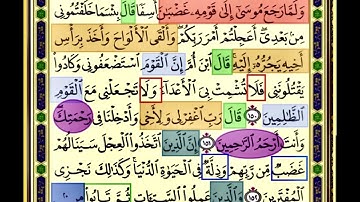 وَلَمَّا رَجَعَ مُوسَىٰٓ إِلَىٰ قَوْمِهِۦ غَضْبَٰنَ أَسِفًا قَالَ بِئْسَمَا خَلَفْتُمُونِى
مِنۢ بَعْدِىٓ ۖ أَعَجِلْتُمْ أَمْرَ رَبِّكُمْ ۖ وَأَلْقَى ٱلْأَلْوَاحَ وَأَخَذَ بِرَأْسِ
أَخِيهِ يَجُرُّهُۥٓ إِلَيْهِ ۚ قَالَ ٱبْنَ أُمَّ إِنَّ ٱلْقَوْمَ ٱسْتَضْعَفُونِى وَكَادُوا۟
يَقْتُلُونَنِى فَلَا تُشْمِتْ بِىَ ٱلْأَعْدَآءَ وَلَا تَجْعَلْنِى مَعَ ٱلْقَوْمِ
ٱلظَّٰلِمِينَ ١٥٠ قَالَ رَبِّ ٱغْفِرْ لِى وَلِأَخِى وَأَدْخِلْنَا فِى رَحْمَتِكَ ۖ
وَأَنتَ أَرْحَمُ ٱلرَّٰحِمِينَ ١٥١ إِنَّ ٱلَّذِينَ ٱتَّخَذُوا۟ ٱلْعِجْلَ سَيَنَالُهُمْ
غَضَبٌ مِّن رَّبِّهِمْ وَذِلَّةٌ فِى ٱلْحَيَوٰةِ ٱلدُّنْيَا ۚ وَكَذَٰلِكَ نَجْزِى
ٱلْمُفْتَرِينَ ١٥٢ وَٱلَّذِينَ عَمِلُوا۟ ٱلسَّيِّـَٔاتِ ثُمَّ تَابُوا۟ مِنۢ